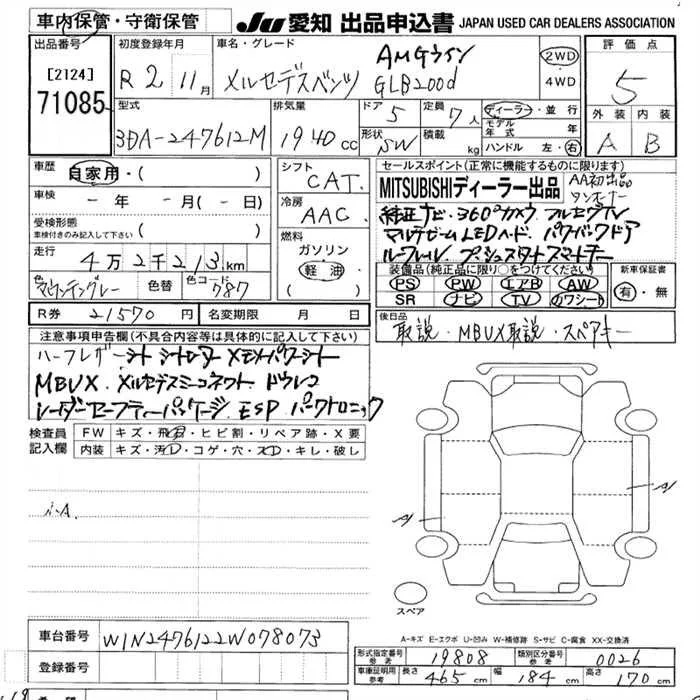 車内保管・守衛保管
JU 愛知 出品申込書 JAPAN USED CAR DEALERS ASSOCIATION
出品番号
[2124]
71085
初度登録年月
R 2 11月
車名・グレード
AMGライン
メルセデスベンツ GLB200d
2WD
・
4WD
評価点
5
型式
3DA-247612M
排気量
1940 cc
ドア
5
定員
7人
形状
SW
積載
kg
ディーラー・並行
モデル年式 年
ハンドル 左・右
外装 内装
A B
車歴
自家用・( )
車検
- 年 - 月(- 日)
受検形態
車検付きのみ記入して下さい ( )
走行
4万2千213km
色 マウンテングレー 色替 色コード 787
シフト
CAT.
冷房
AAC.
燃料
ガソリン
軽油
( )
セールスポイント(正常に機能するものに限ります)
MITSUBISHIディーラー出品
AA初出品
ワンオーナー
純正ナビ・360°カメラ・フルセグTV
マルチビームLEDヘッド・パワーバックドア
ルーフレール プッシュスタートスマートキー
装備品(純正品に限り○をつけてください)
PS PW エアB AW
SR ナビ TV カワシート
新車保証書
有・無
R券 21570円 名変期限 月 日
後日品
取説・MBUX取説・スペアキー
注意事項申告欄(不具合内容等は具体的に記入して下さい)
ハーフレザーシート シートヒーター メモリパワーシート
MBUX.メルセデスミーコネクト ドラレコ
レーダーセーフティーパッケージ ESP パークトロニック
検査員記入欄
FW キズ・飛石・ヒビ割・リペア跡・X要
内装 キズ・汚レ・コゲ・穴・スレ・キレ・破レ
A
A
スペア
A-キズ E-エクボ U-凹み W-補修跡 S-サビ C-腐食 XX-交換済
車台番号 W1N2476122W078073
登録番号
形式指定番号 参考 19808
類別区分番号 参考 0026
車庫証明用 参考 長さ 465 cm 幅 184 cm 高さ 170 cm